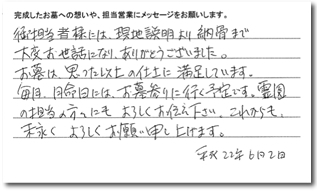 完成したお墓への想いや、担当営業にメッセージをお願いします。
御担当者様には、現地説明より納骨まで
大変お世話になり、ありがとうございました。
お墓は、思った以上の仕上に満足しています。
毎月、月命日には、お墓参りに行く予定です。霊園
の担当の方へにも よろしくお伝え下さい。これからも、
末永く よろしくお願い申し上げます。
平成22年6月2日